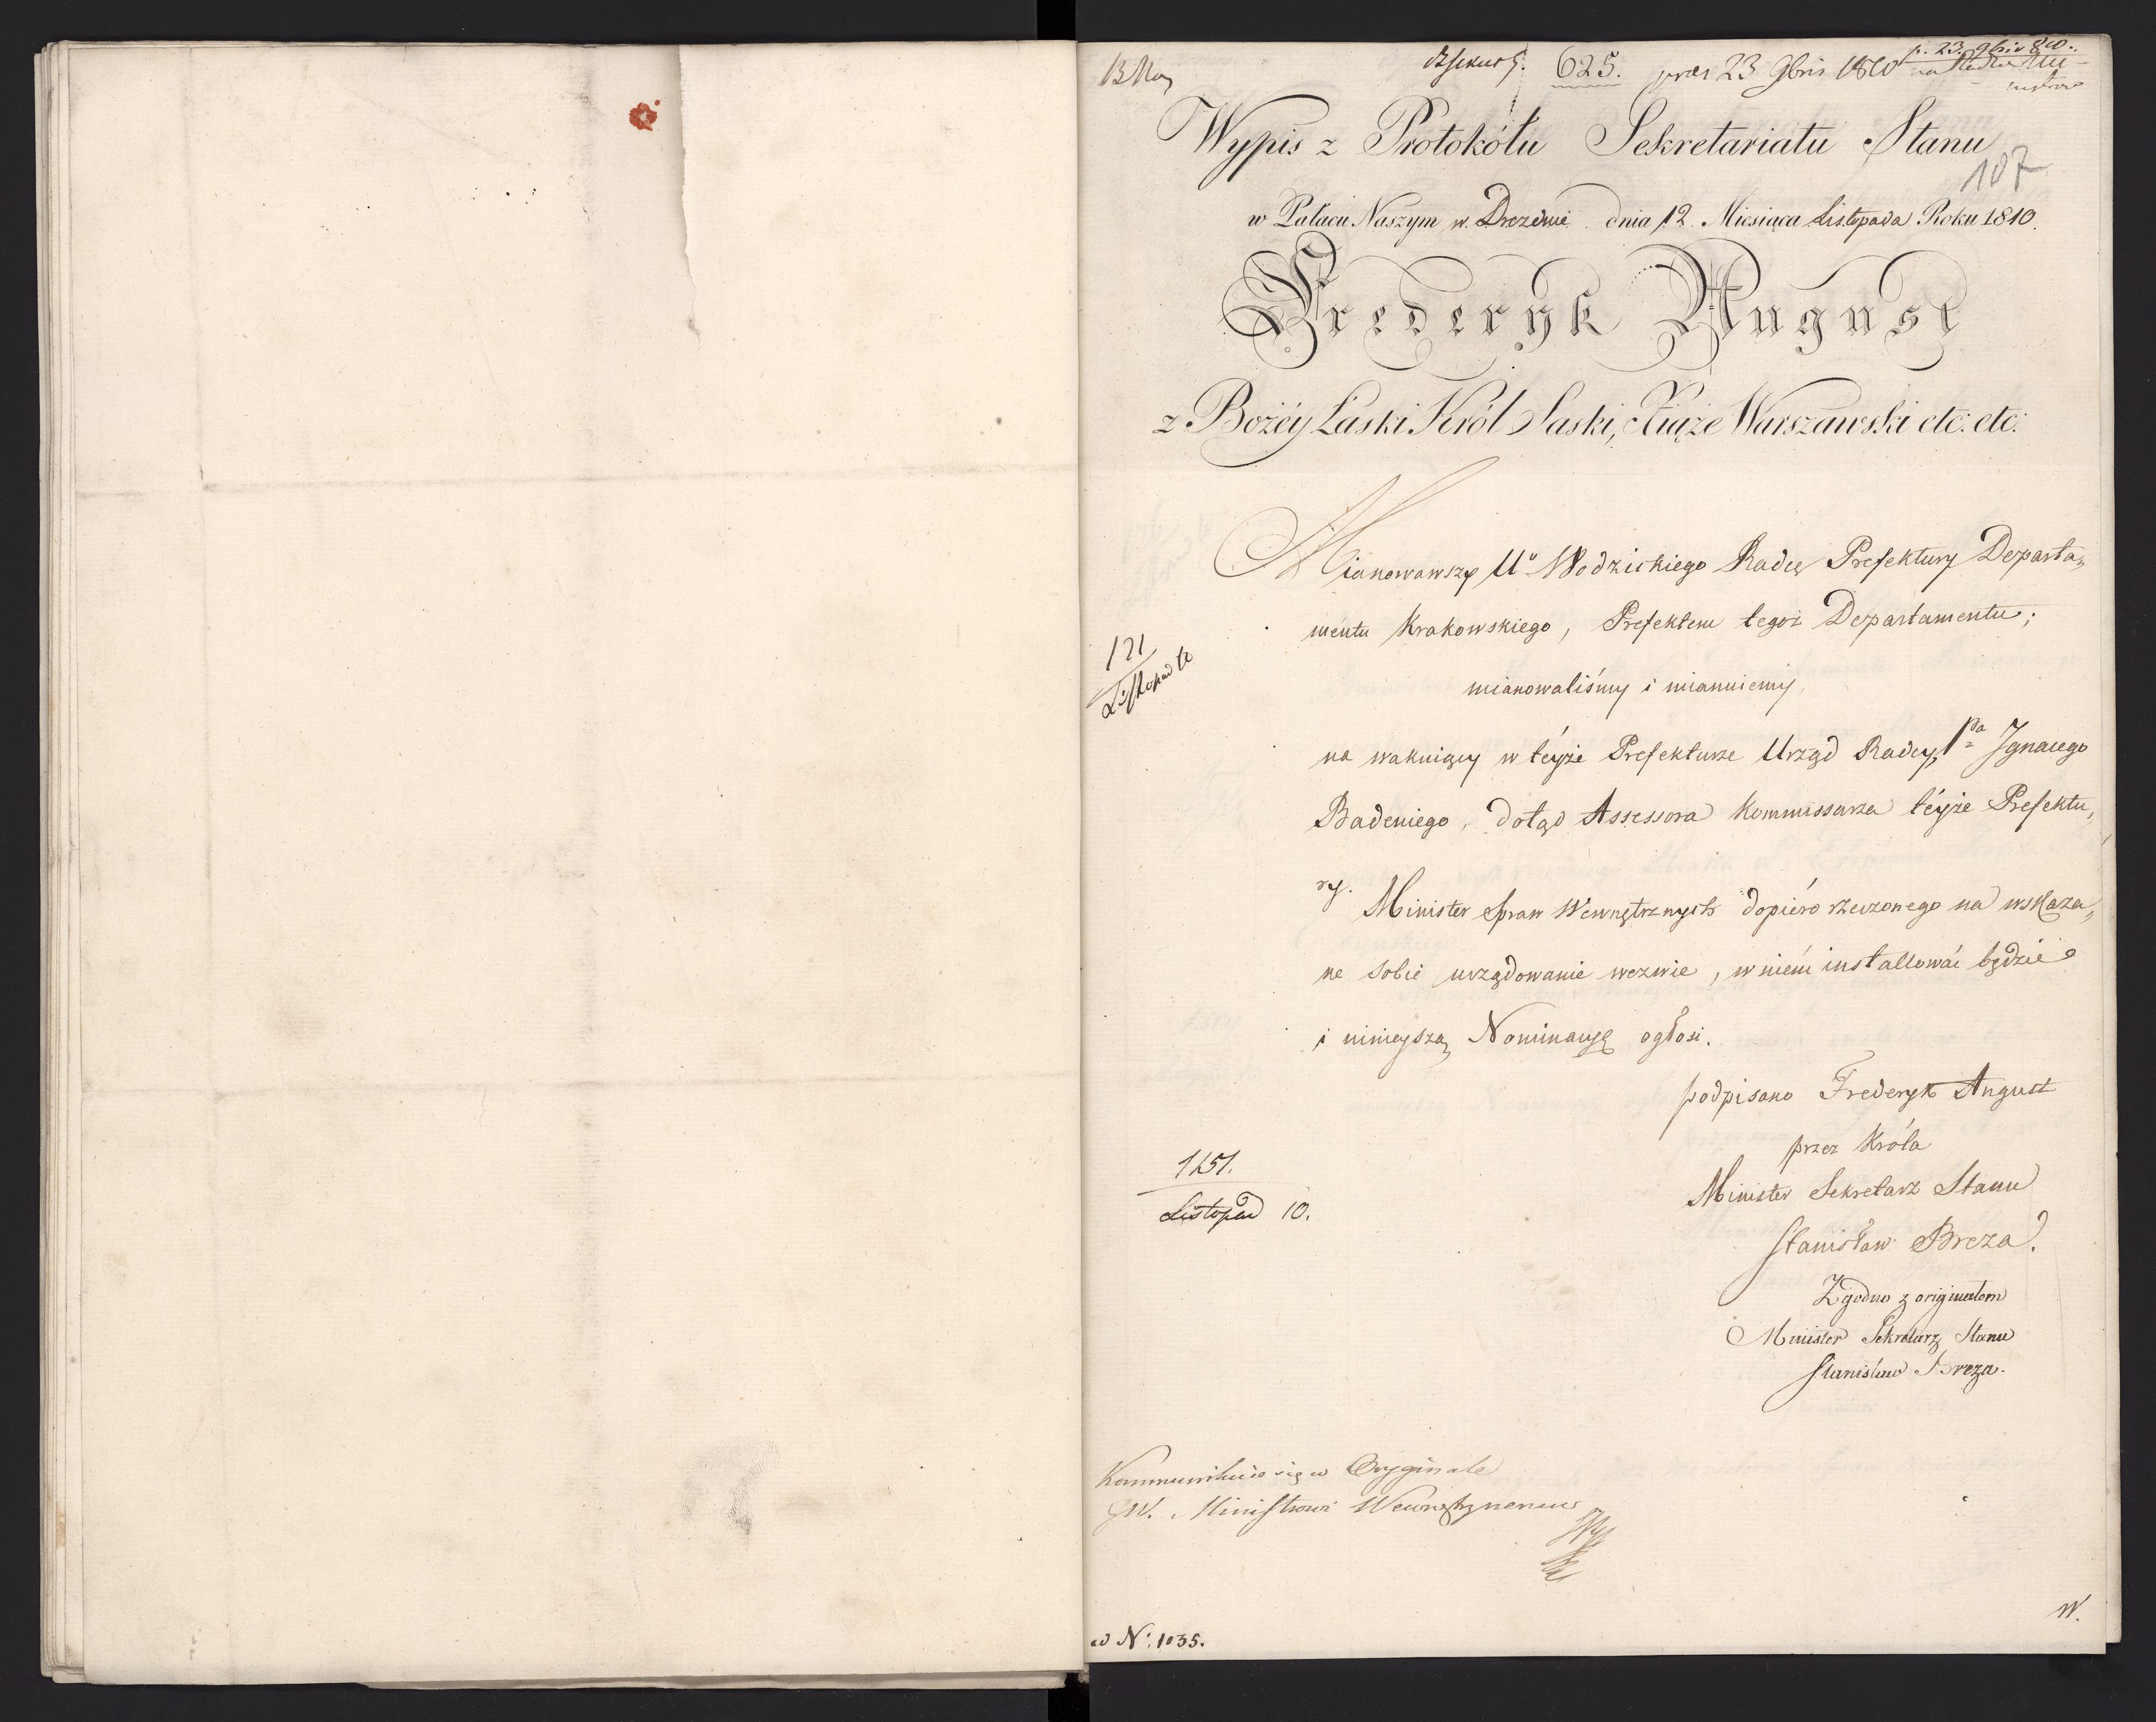 625. praes 23 9bris 1810
p. 23. 9bris 810.
Wypis z Protokółu Sekretariatu Stanu
107
w Pałacu Naszym w. Dreznie. dnia 12. Miesiąca Listopada Roku 1810.
Fryderyk August
z Bożéy Łaski Król Saski, Xiąże Warszawski etc: etc:
Mianowawszy Uo Wodzickiego Radcę Prefektury Departa„
mentu Krakowskiego, Prefektem tegoż Departamentu;
121
Listopad 10
mianowaliśmy i mianuiemy,
na wakuiący w téyże Prefekturze Urząd Radcy, Pa Ignacego
Badeniego, dotąd Assessora Kommissarza téyże Prefektu„
ry.
Minister Spraw Wewnętrznych dopiéro rzeczonego na wskaza„
ne sobie urzędowanie wezwie, w niém installować będzie
i ninieyszą Nominacyę ogłosi.
podpisano Fryderyk August
przez Króla
Minister Sekretarz Stanu
Stanisław Breza.
1251.
Listopad 10.
Zgodno z originałem
Minister Sekretarz Stanu
Stanisław Breza.
Kommunikuie się w Oryginale
JW. Ministrowi Wewnętrznemu
W.
ad N: 1035.